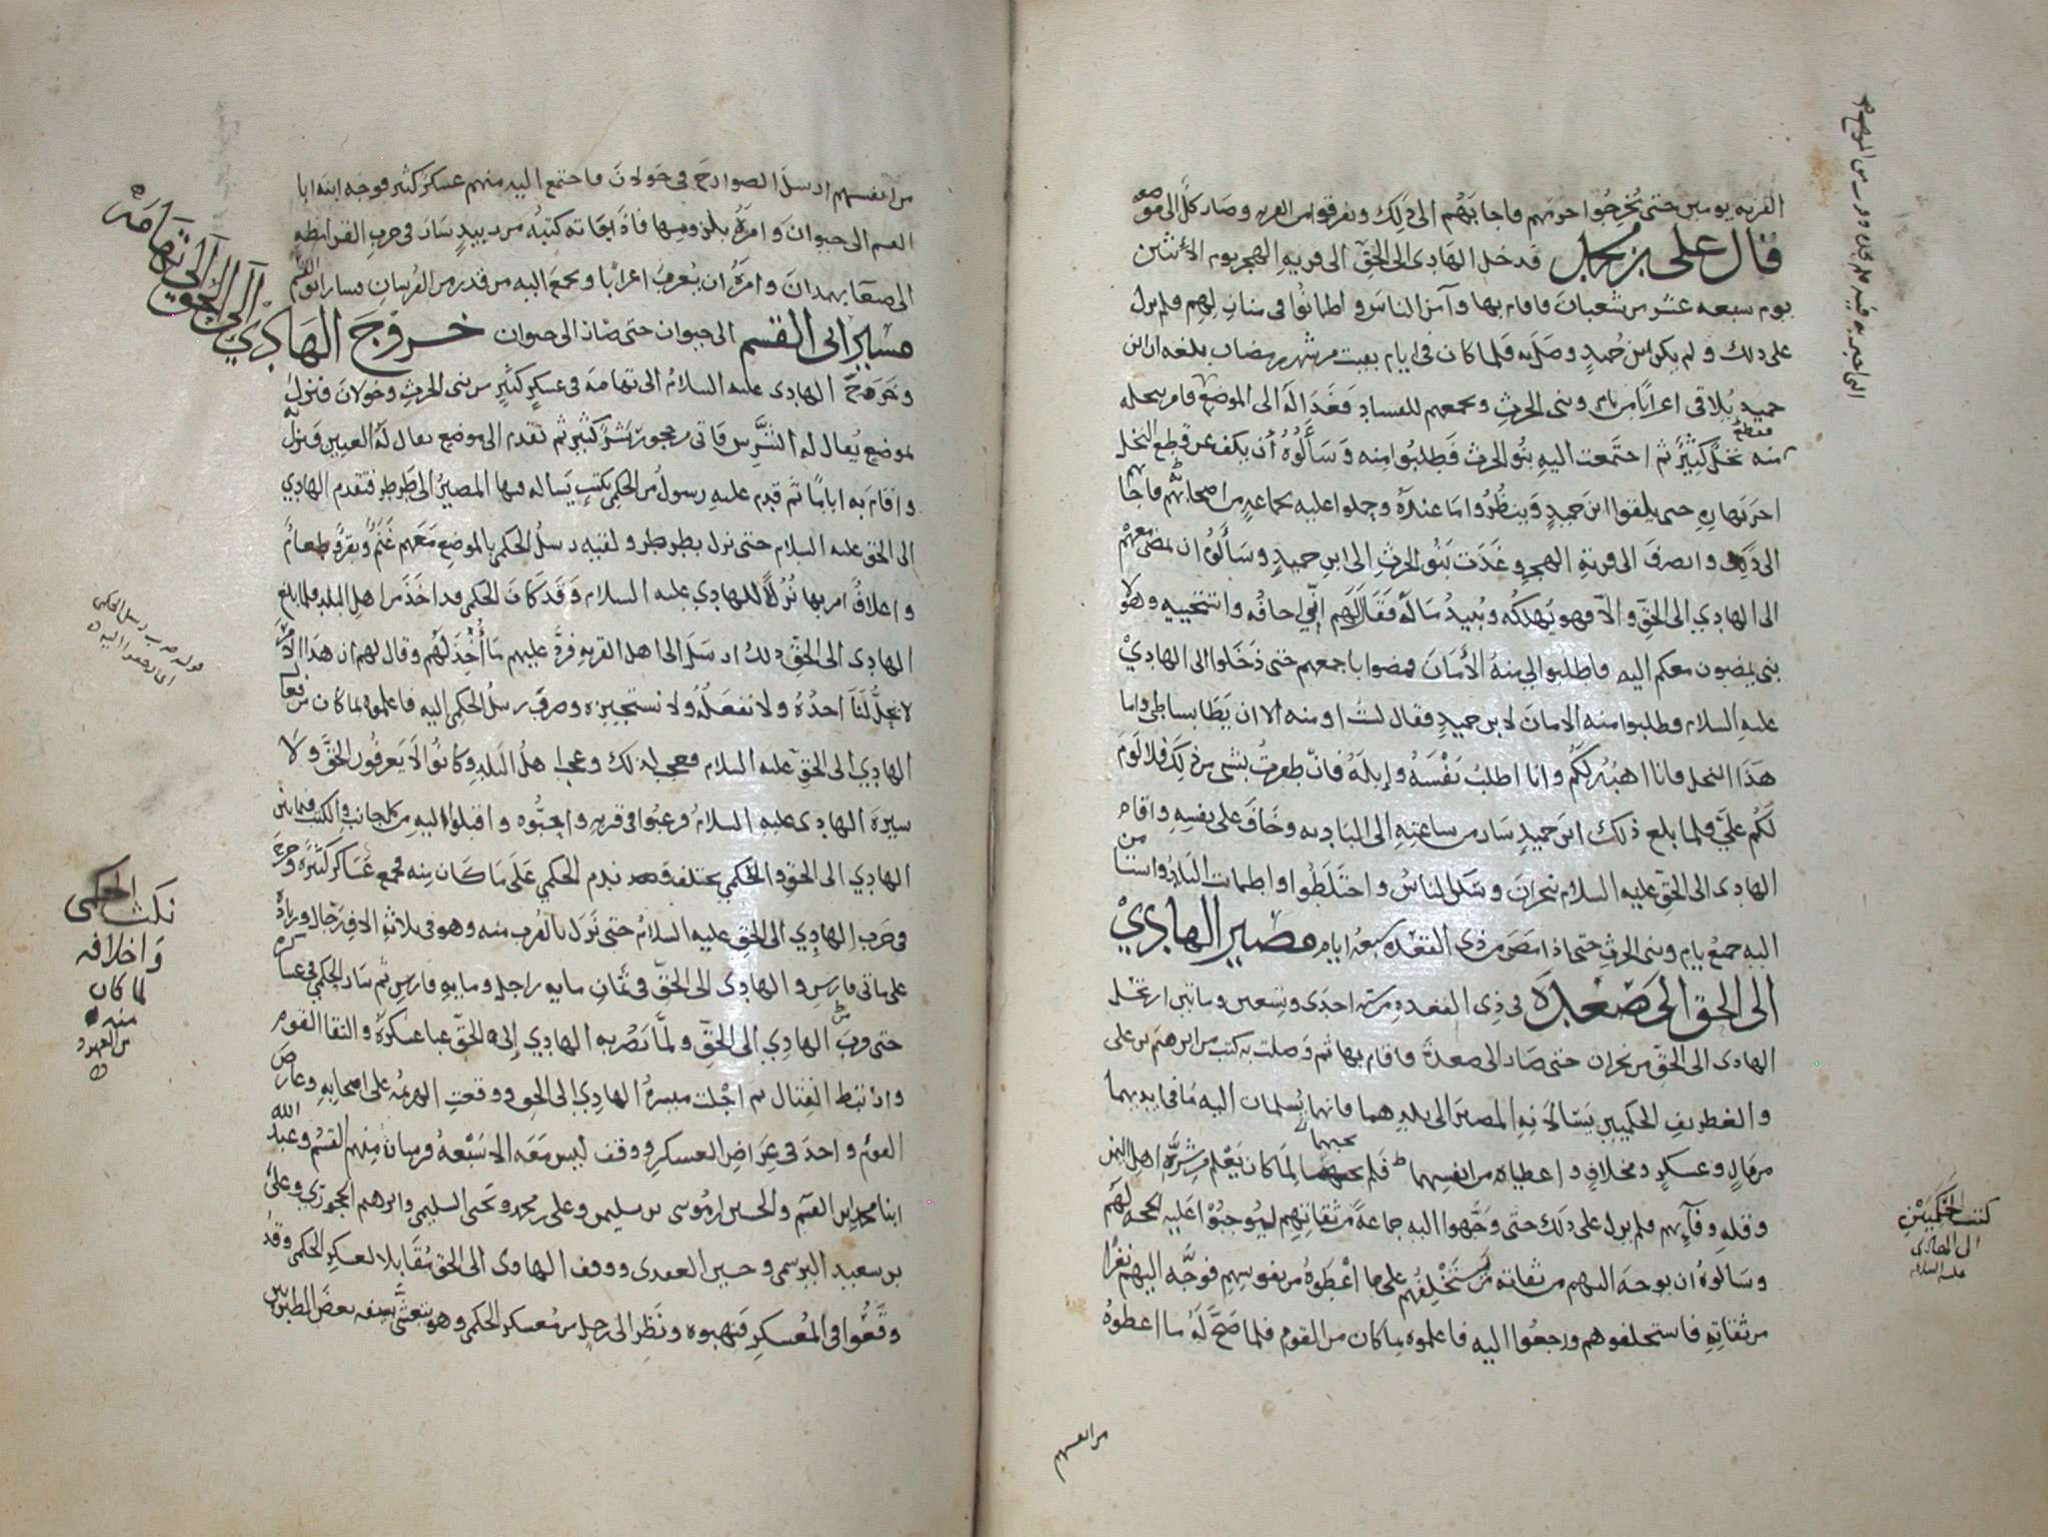 القريه يومين حتى يخرجوا حرمهم فاجابهم الى ذلك وتفرقوا من القريه وصار كل الى موضعه
قال علي بن محمد فدخل الهادي الى الحق الى قرية الهجر يوم الاثنين
يوم سبعه عشر من شعبان فاقام بها وآمن الناس واطمانوا في منازلهم فلم يزل
على ذلك ولم يكن ابن حميد وصل به فلما كان في ايام بقيت من شهر رمضان بلغه ان ابن
حميد يلاقي اعرابا من يام وبنى الحرث ويجمعهم للفساد فغدا له الى الموضع فامر بنخله
فقطع
منه نخل كثير ثم اجتمعت اليه بنو الحرث فطلبوا منه وسألوه أن يكف عن قطع النخل
اخر نهاره حتى يلقوا ابن حميد وينظروا ما عنده وحملوا عليه بجماعه من اصحابهم فاجابهم
الى ذلك وانصرف الى قرية الهجر وغدت بنو الحرث الى ابن حميد وسألوه ان يمضي معهم
الى الهادي الى الحق والا فهو يهلكه ويبيد ماله فقال لهم اني اخافه واستحييه وهولا
بني يمضون معكم اليه فاطلبوا لي منه الأمان فمضوا باجمعهم حتى دخلوا الى الهادي
عليه السلام وطلبوا منه الامان لابن حميد فقال لست اومنه الا ان يطا بساطي واما
هذا النخل فانا اهبه لكم وانا اطلب نفسه وإبله فان ظفرت بشي من ذلك فلا لوم
لكم علي فلما بلغ ذلك ابن حميد سار من ساعته الى الباديه وخاف على نفسه واقام
الهادي الى الحق عليه السلام بنجران وسكن الناس واختلطوا واطمانت البلاد واستامن
اليه جميع يام وبنى الحرث حتى اذا مضى من ذي القعده سبعه ايام مصير الهادي
الى الحق الى صعدة في ذي القعده من سنه احدى وتسعين ومائتين ارتحل
الهادي الى الحق من نجران حتى صار الى صعدة فاقام بها ثم وصلت به كتب من ابرهيم بن علي
والغطريف الحكميين يسالانه المصير الى بلدهما فانهما يسلمان اليه ما في ايديهما
من مال وعسكر ومخلاف واعطياه من انفسهما فلم يجبهما لما كان يعلم من شره اهل اليمن
وقله وفآئهم فلم يزل على ذلك حتى وجهوا اليه جماعة من ثقاتهم ليوجبوا عليه الحجه لهم
وسالوه ان يوجه اليهم من ثقاته من يستحلفهم على ما اعطوه من نفوسهم فوجه اليهم نفرا
من ثقاته فاستحلفوهم ورجعوا اليه فاعلموه بما كان من القوم فلما صح له ما اعطوه
من انفسهم
كتب الحكميين
الى الهادي
عليه السلام
من انفسهم ارسل الصوارخ في خولان فاجتمع اليه منهم عسكر كثير فوجه ابنه ابا
القسم الى خيوان وامره بلزومها فاذا بقاته كتبه من دبيد سار في حرب القرامطه
الى صنعا بهمدان وامره ان يعرب اعرابا ويجمع اليه من قدر من الفرسان فسار ابو القسم
مسير ابى القسم الى خيوان حتى صار الى خيوان خروج الهادي الى الحق الى تهامة
وخرج الهادى عليه السلام الى تهامه في عسكر كثير من بنى الحرث وخولان فنزل
بموضع يقال له الشرس فاتى بحجور بشر كثير ثم تقدم الى موضع يقال له العيين فنزل به
واقام به اياما ثم قدم عليه رسول من الحكمي بكتب يساله فيها المصير الى طرطر فتقدم الهادي
الى الحق عليه السلام حتى نزل بطرطر ولقيه رسل الحكمي بالموضع معهم غنم وبقر وطعام
واعلاف امر بها نزلا للهادي عليه السلام وقد كان الحكمي قد اخذ من اهل البلد فلما بلغ
الهادى الى الحق ذلك ارسل الى اهل القريه فرد عليهم ما أخذ لهم وقال لهم ان هذا الامر
لا يحل لنا اخذه ولا نفعله ولا نستجيزه وصرف رسل الحكمي اليه فاعلموه بما كان من فعل
الهادي الى الحق عليه السلام فعجب لذلك وعجب اهل البلد وكانوا لا يعرفون الحق ولا
سيرة الهادى عليه السلام فرغبوا في قربه واحبوه واقبلوا اليه من كل جانب والكتب فيما بين
الهادي الى الحق والحكمي مختلفه وقد ندم الحكمي على ما كان منه فجمع عساكر كثيرة وخرج
في حرب الهادي الى الحق عليه السلام حتى نزل بالقرب منه وهو في ثلاثه الاف رجال وزيادة
على ماتى فارس والهادى الى الحق في ثمان مايه راجل ومايه فارس ثم سار الحكمي في عساكره
حتى قرب من الهادي الى الحق ولما بصر به الهادي إلى الحق عبا عسكره والتقا القوم
وارتبط القتال ثم انجلت ميسرة الهادي الى الحق ووقعت الهزيمه على اصحابه وعارض
القوم واخذ في عراض العسكر ووقف ليس معه الا سبعه فرسان منهم القسم وعبد الله
ابنا محمد ابن القسم والحسين ابن موسى بن سليمن وعلي بن محمد ويحيى السليمي وابرهيم الحجوري وعلى
بن سعيد البرسمي وحسين العقدى ووقف الهادى الى الحق مقابلا لعسكر الحكمي وقد
وقعوا في المعسكر فنهبوه ونظر الى رجل من معسكر الحكمي وهو يتعشى بسيفه بعض المطبريين
نكث الحكمي
واخلافه
لما كان
منه
من العهود